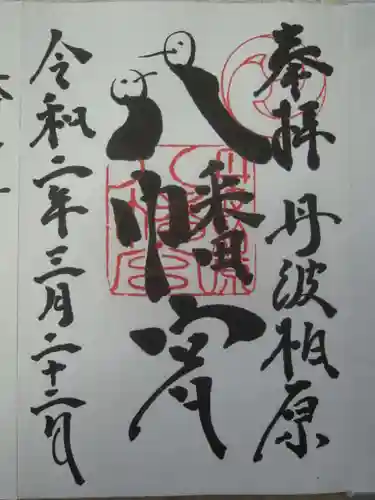 奉拝
丹波柏原
八幡宮
令和二年三月二十二日